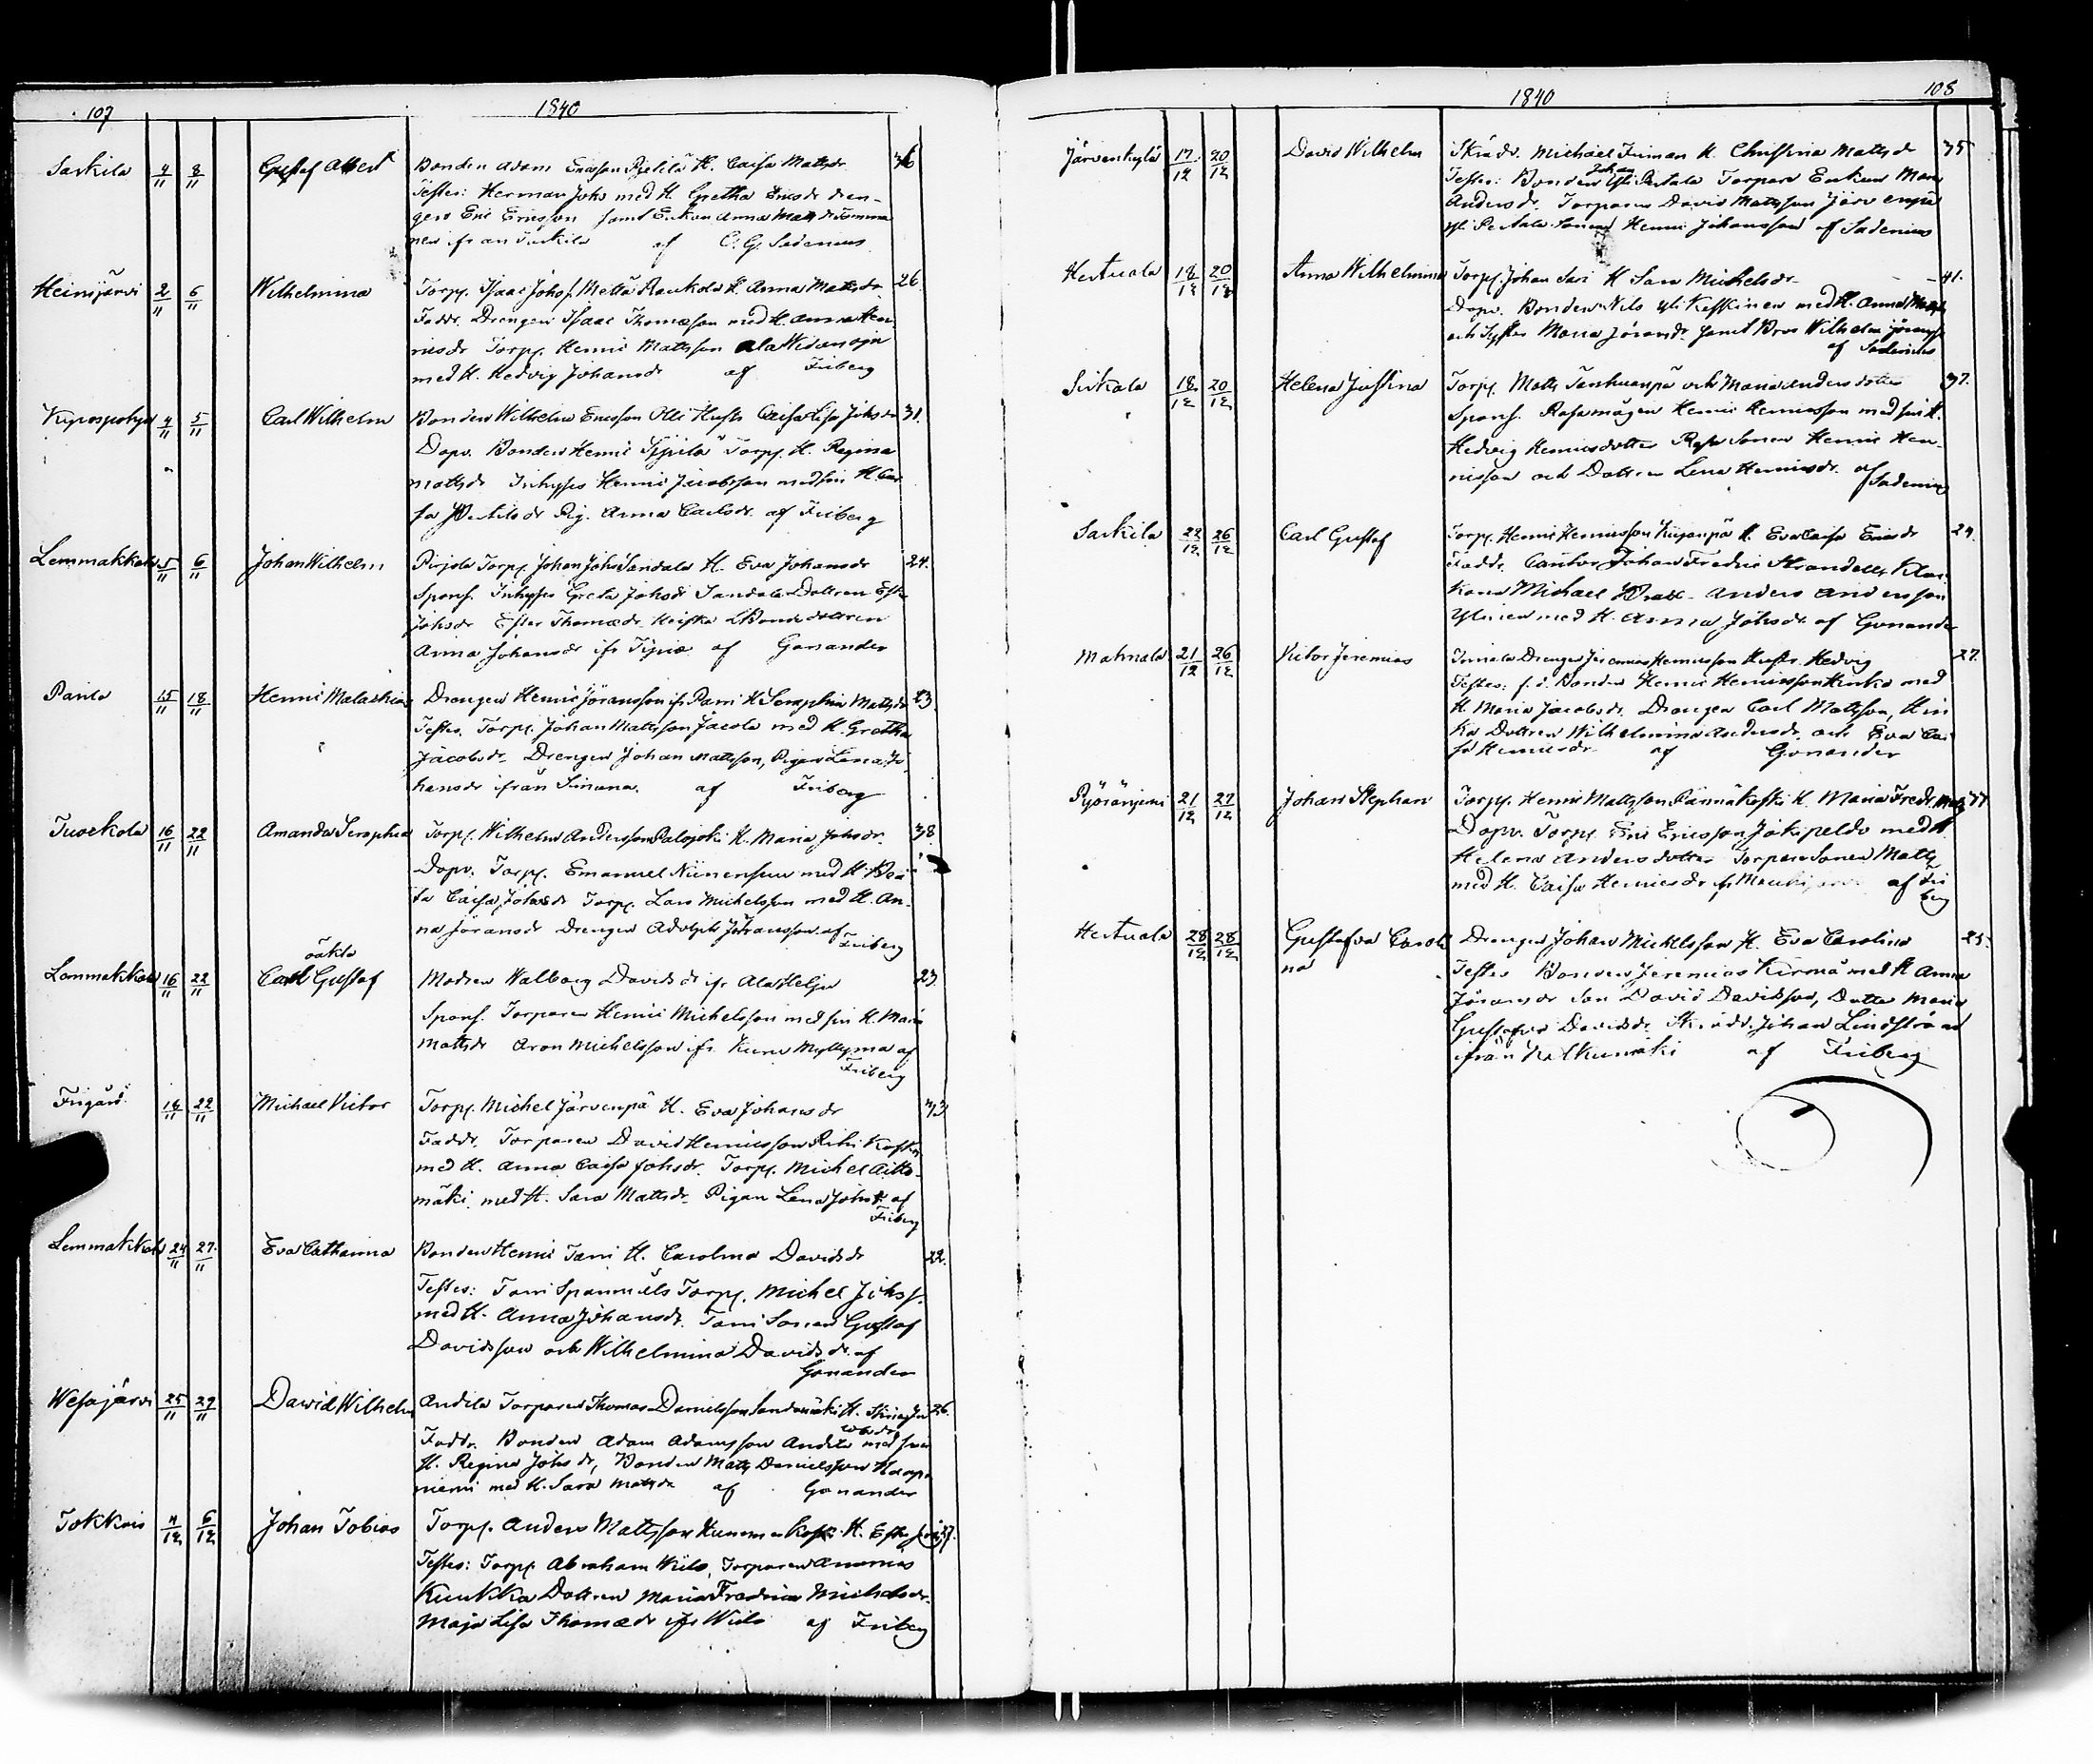 107
1840
Sarkila 4/11 8/11 Gustaf Albert Bonden Adam Ericsson H. Caisa Mattsdr 36
Testes: Herman Johs med H. Gretha Ericsdr dren-
gen Eric Ericsson samt Enkan Anna Mattsdr
ifran Sarkila af C. G. Sadenius
Heinijärvi 2/11 6/11 Wilhelmina Torp. Isaac Johss. Mettä Raukola H. Anna Mattsdr 26.
Faddr. Drengen Isaac Thomasson med H. Anna Hen-
ricsdr Torp. Henric Mattsson Ala
med H. Hedvig Johansdr af Friberg
Kyrospohja 4/11 5/11 Carl Wilhelm Bonden Wilhelm Ericsson Olli Hustr Caisa Lisa Johsdr 31.
Dopv. Bonden Henric Torp. H. Regina
Mattsdr Inhyses Henric Jacobsson med sin H. Cai-
sa Bertilsdr Pig. Anna Carlsdr. af Friberg
Lemmakkala 5/11 6/11 Johan Wilhelm Pirjola Torp. Johan Johs Sandala H. Eva Johansdr 24.
Spons. Inhyses Greta Johsdr Sandala Dottren
Johsdr Ester Thomædr Heiska Bonde dottren
Anna Johansdr ifr af Gonander
Panla 15/11 18/11 Henric Malachias Drengen Henric Jöransson ifr Parri H. Seraphia Mattsdr 23
Testes. Torp. Johan Mattsson Jacola med H. Gretha
Jacobsdr Drengen Johan Mattsson, Pigan Lena Jo-
hansdr ifrån Simuna. af Friberg
Tuockola 16/11 22/11 Amanda Seraphia Torp. Wilhelm Andersson Palojoki H. Maria Johsdr. 38.
Dopv. Torp. Emanuel med H. Bri-
ta Caisa Johsdr Torp. Lars Michelsson med H. An-
na Jöransdr Drengen Adolph Johansson af
Friberg
oäkta
Lemmakkala 16/11 22/11 Carl Gustaf Modren Walborg Davidsdr ifr Ala Heljo 23.
Spons. Torparen Henric Michelsson med sin H. Maria
Mattsdr Aron Michelsson ifr. Myllymaa af
Friberg
Frigård 18/11 22/11 Michael Victor Torp. Michel Järvenpä H. Eva Johansdr 43
Faddr. Torparen David Henricsson Koski
med H. Anna Caisa Johsdr. Torp. Michel Aitto-
mäki med H. Sara Mattsdr Pigan Lena Johsdr af
Friberg
Lemmakkala 24/11 27/11 Eva Catharina Bonden Henric Tarri H. Carolina Davidsdr 22.
Testes: Tarri Torp. Michel Johss.
med H. Anna Johansdr. Tarri Sonen Gustaf
Davidsson och Wilhelmina Davidsdr. af
Gonander
Wesajärvi 25/11 29/11 David Wilhelm Andila Torparen Thomas Danielsson H. Stina Ja- 26.
cobsdr
Faddr. Bonden Adam Adamsson Andila med sin
H. Regina Johsdr, Bonden Matts Danielsson Haapa-
niemi med H. Sara Mattsdr af Gonander
Tokkois 4/12 6/12 Johan Tobias Torp. Anders Mattsson H. 37.
Testes: Torp. Abraham Wiils, Torparen Ananias
Kuukka Dottren Maria Fredrica Michelsdr.
Maja Lisa Thomædr ifr af Friberg
1840
108
Järvenkylä 17/12 20/12 David Wilhelm Skrädr. Michael Friman H. Christina Mattsdr 35
Johan
Testes: Bonden Yli Pertala Torpare Enkan Maria
Andersdr. Torparen David Mattsson Järvenpä
Yli Pertala Sonen Henric Johansson af Sadenius
Hertuala 18/12 20/12 Anna Wilhelmina Torp. Johan Sari H. Sara Michelsdr. 41.
Dopv. Bonden Nils Yli Keskinen med H. Anna
och Syster Maria Jöransdr. samt Bror Wilhelm Jöranss.
af Sadenius
Sirkala 18/12 20/12 Helena Justina Torp. Matts Tanhuanpä och Maria Anders dotter 37.
Spons. Henric Henricsson med sin H.
Hedvig Henricsdotter Sonen Henric Hen-
ricsson och Dottren Lena Henricsdr. af
Sadenius
Sarkila 22/12 26/12 Carl Gustaf Torp. Henric Henricsson H. Eva Caisa Ericsdr 24.
Faddr. Cantor Johan Fredric Strandell, Kloc-
karen Michael Anders Andersson
Ylinen med H. Anna Johsdr. af Gonander
Mahnala 21/12 26/12 Victor Jeremias Drengen Jeremias Henricsson Hustr. Hedvig 27.
Testes: f. d. Bonden Henric Henricsson med
H. Maria Jacobsdr. Drengen Carl Mattsson,
Dottren Wilhelmina Andersdr. och Eva Cai-
sa Henricsdr af Gonander
Pyöräniemi 21/12 27/12 Johan Stephan Torp. Henric Mattsson Pärnäkoski H. Maria Fredr. Matts
Dopv. Torp. Eric Ericsson Jokipeldo med H.
Helena Anders dotter Torpare Sonen Matts
med H. Caisa Henricsdr ifr af Fri-
berg
Hertuala 28/12 28/12 Gustafva Caroli- Drengen Johan Michelsson H. Eva Carolina 25.
na
Testes Bonden Jeremias Kirmä med H. Anna
Jöransdr Son David Davidsson, Dotter Maria
Gustafva Davidsdr. Skrädd. Johan Lindström
ifrån Kalkunmäki af Friberg